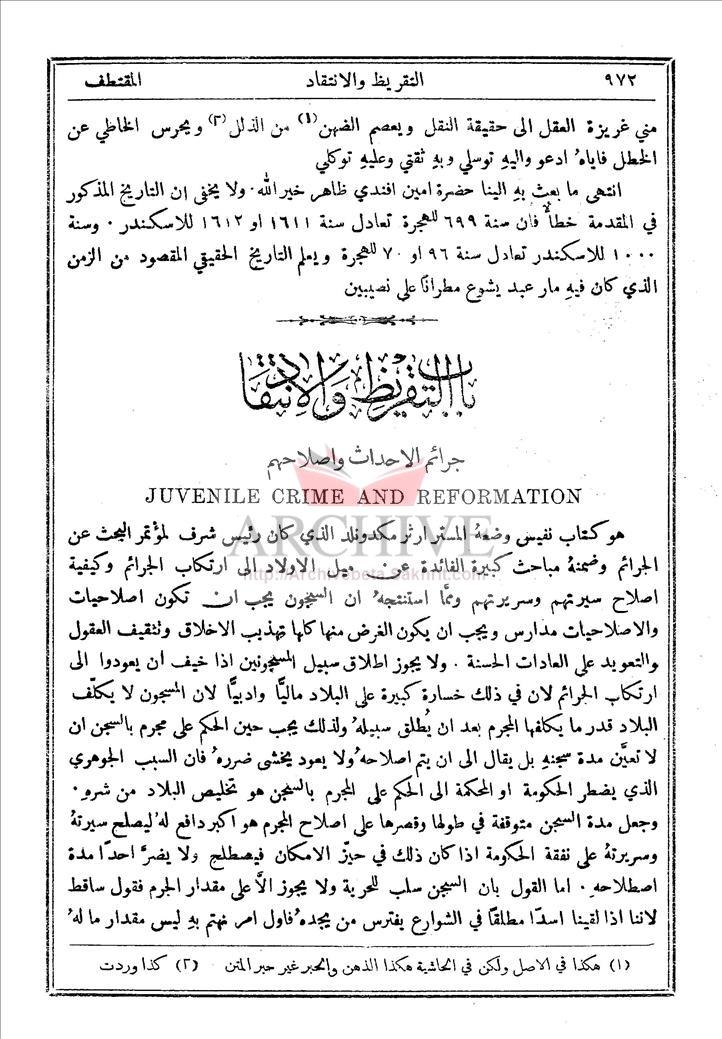 ٩٧٢ التقريظ والانتقاد المقتطف
مني غريزة العقل الى حقيقة النقل ويعصم الضهن(١) من الذلل(٢) ويحرس الخاطي عن
الخطل فاياهُ ادعو واليهِ توسلي وبهِ ثقتي وعليهِ توكلي
انتهى ما بعث بهِ الينا حضرة امين افندي ظاهر خير الله . ولا يخفى ان التاريخ المذكور
في المقدمة خطأٌ فان سنة ٦٩٩ للهجرة تعادل سنة ١٦١١ او ١٦١٢ للاسكندر . وسنة
١٠٠٠ للاسكندر تعادل سنة ٩٦ او ٧٠ للهجرة ويعلم التاريخ الحقيقي المقصود من الزمن
الذي كان فيهِ مار عبد يشوع مطرانًا على نصيبين
باب التقريظ والانتقاد
جرائم الاحداث واصلاحهم
JUVENILE CRIME AND REFORMATION
هو كتاب نفيس وضعهُ المستر ارثر مكدونلد الذي كان رئيس شرف لمؤتمر البحث عن
الجرائم وضمنهُ مباحث كبيرة الفائدة عن ميل الاولاد الى ارتكاب الجرائم وكيفية
اصلاح سيرتهم وسريرتهم وممَّا استنتجهُ ان السجون يجب ان تكون اصلاحيات
والاصلاحيات مدارس ويجب ان يكون الغرض منها كلها تهذيب الاخلاق وتثقيف العقول
والتعويد على العادات الحسنة . ولا يجوز اطلاق سبيل المسجونين اذا خيف ان يعودوا الى
ارتكاب الجرائم لان في ذلك خسارة كبيرة على البلاد ماليًّا وادبيًّا لان المسجون لا يكلّف
البلاد قدر ما يكلفها المجرم بعد ان يُطلق سبيلهُ ولذلك يجب حين الحكم على مجرم بالسجن ان
لا تعيَّن مدة سجنهِ بل يقال الى ان يتم اصلاحهُ ولا يعود يخشى ضررهُ فان السبب الجوهري
الذي يضطر الحكومة او المحكمة الى الحكم على المجرم بالسجن هو تخليص البلاد من شرهِ .
وجعل مدة السجن متوقفة في طولها وقصرها على اصلاح المجرم هو اكبر دافع لهُ ليصلح سيرتهُ
وسريرتهُ على نفقة الحكومة اذا كان ذلك في حيّز الامكان فيصطلح ولا يضرّ احدًا مدة
اصطلاحهِ . اما القول بان السجن سلب للحرية ولا يجوز الَّا على مقدار الجرم فقول ساقط
لاننا اذا لقينا اسدًا مطلقًا في الشوارع يفترس من يجدهُ فاول امر نهتم بهِ ليس مقدار ما لهُ
(١) هكذا في الاصل ولكن في الحاشية هكذا الذهن والحبر غير حبر المتن (٢) كذا وردت
ARCHIVE
http://Archivebeta.Sakhrit.com